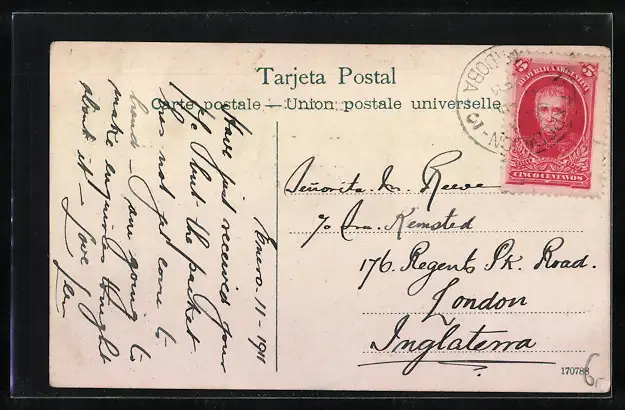 Tarjeta Postal
Carte postale — Union postale universelle
5 5
REPUBLICA ARGENTINA
CINCO CENTAVOS
DOBA
Enero. 11 - 1911
Have just received your
P/c but the packet
has not yet come to
hand - am going to
make enquiries tonight
about it - Love
Señorita. M. Reeve
c/o Mrs. Kemsted
176. Regents Pk. Road.
London
Inglaterra
170788
6